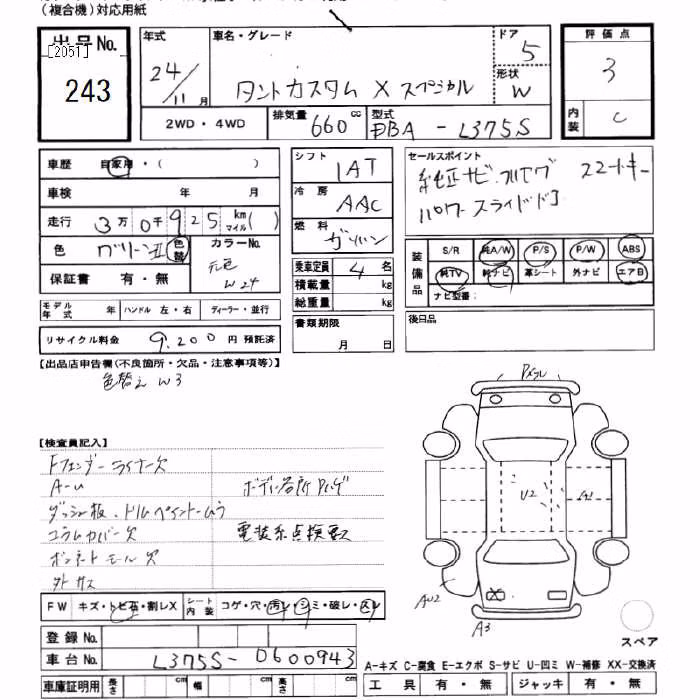 (複合機)対応用紙
出品No.
[2051]
243
年式
24/11月
車名・グレード
タントカスタム X スペシャル
ドア
5
形状
W
評価点
3
内装
C
2WD・4WD
排気量
660 cc
型式
DBA - L375S
車歴 自家用・( )
車検 年 月
走行 3万0千925 km マイル( )
色 グリーンII 色替
カラーNo.
元色
W24
保証書 有・無
モデル年式 年 ハンドル 左・右 ディーラー・並行
リサイクル料金 9.200円 預託済
シフト
1AT
冷房
AAC
燃料
ガソリン
乗車定員 4名
積載量 kg
総重量 kg
書類期限
月 日
セールスポイント
純正ナビ・フルセグ スマートキー
パワースライドドア
装備品
S/R 純A/W P/S P/W ABS
純TV 純ナビ 革シート 外ナビ エアB
ナビ型番:
後日品
【出品店申告欄(不良箇所・欠品・注意事項等)】
色替え W3
【検査員記入】
Fフェンダーライナー欠
A-ム
ボディ各所
ダッシュ板、ドルムペイントームラ
コラムカバー欠
電装系点検要
ボンネットモール欠
外 キズ
FW キズ・トビ石・割レX
シート内装 コゲ・穴・汚レ・シミ・破レ・スレ
登録No.
車台No. L375S-0600943
車庫証明用 長さ cm 幅 cm 高さ cm
U2
A1
AU2
X
A3
スペア
A-キズ C-腐食 E-エクボ S-サビ U-凹ミ W-補修 XX-交換済
工具 有・無 ジャッキ 有・無